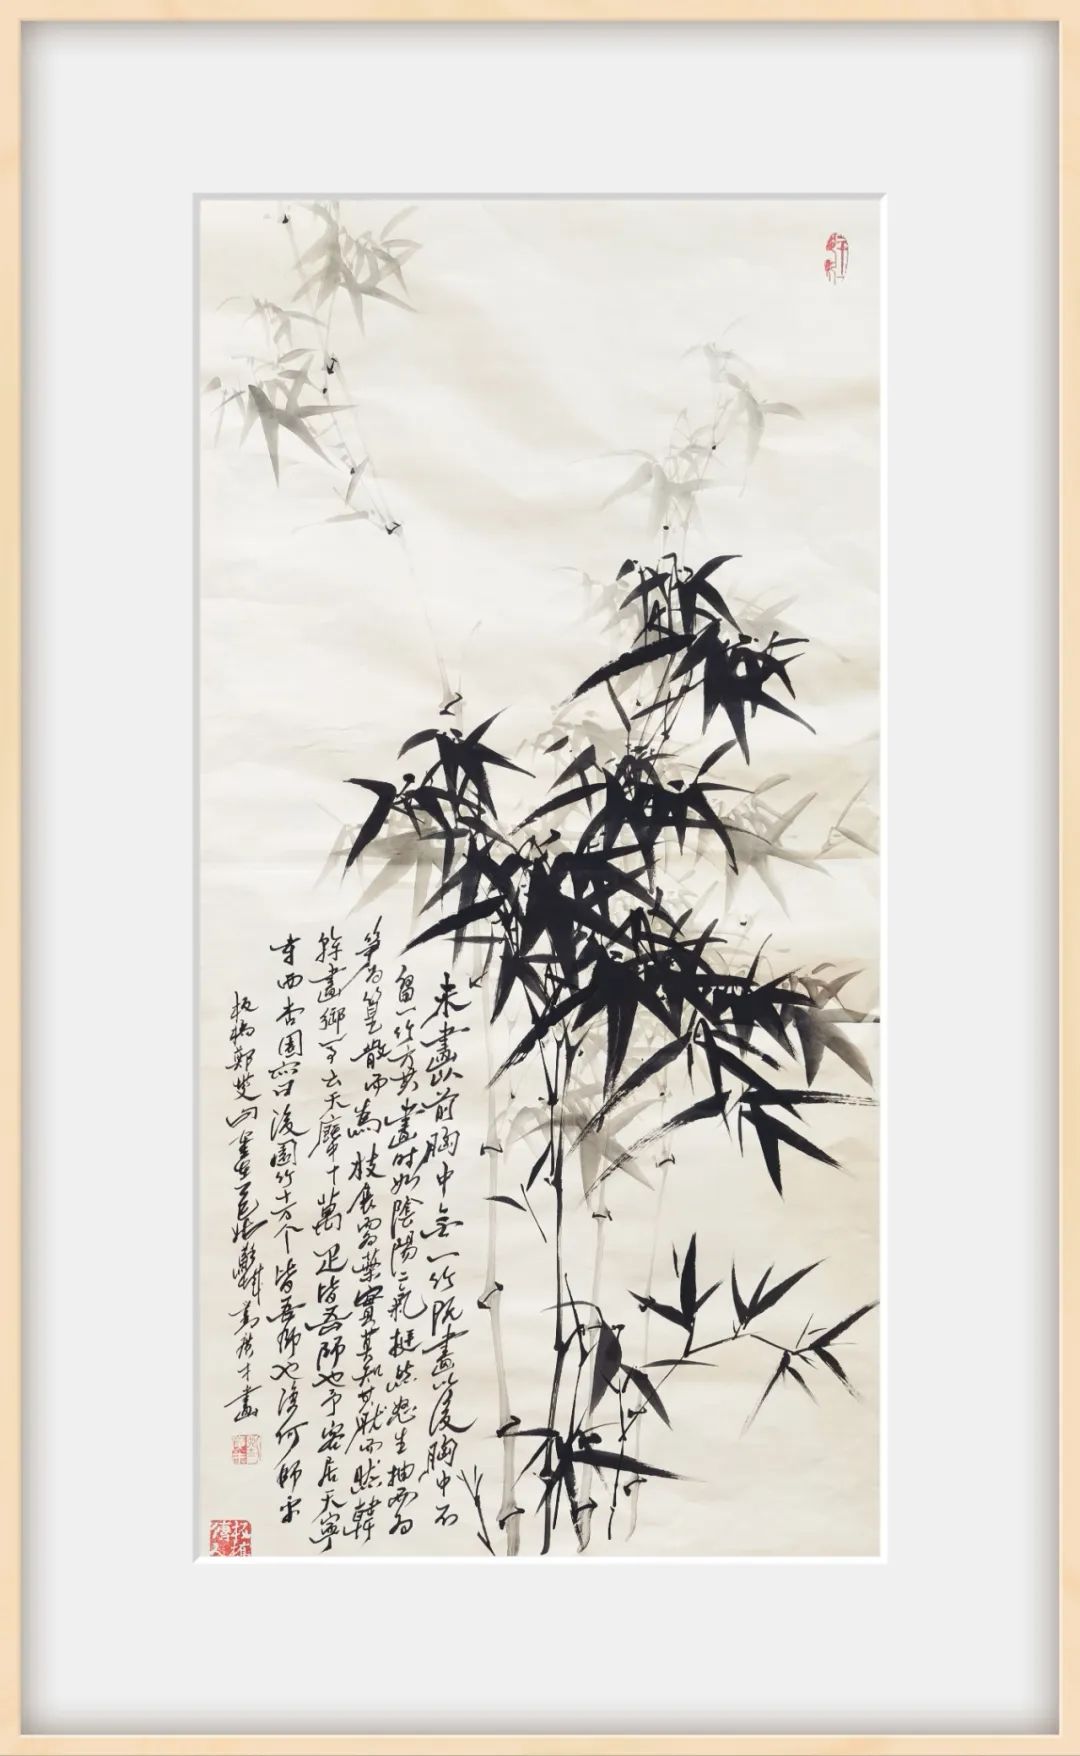 未畫以前胸中無一竹既畫以後胸中不
留一竹方其畫時如陰陽二氣挺然怒生抽而为
笋为篁散而為枝展而为葉實莫知其然而然韓
幹畫御馬云天廄中十萬疋皆吾師也予客居天寧
寺西杏園亦曰後園竹十万个皆吾師也復何師乎
板橋鄭燮句 畫
板橋傳人